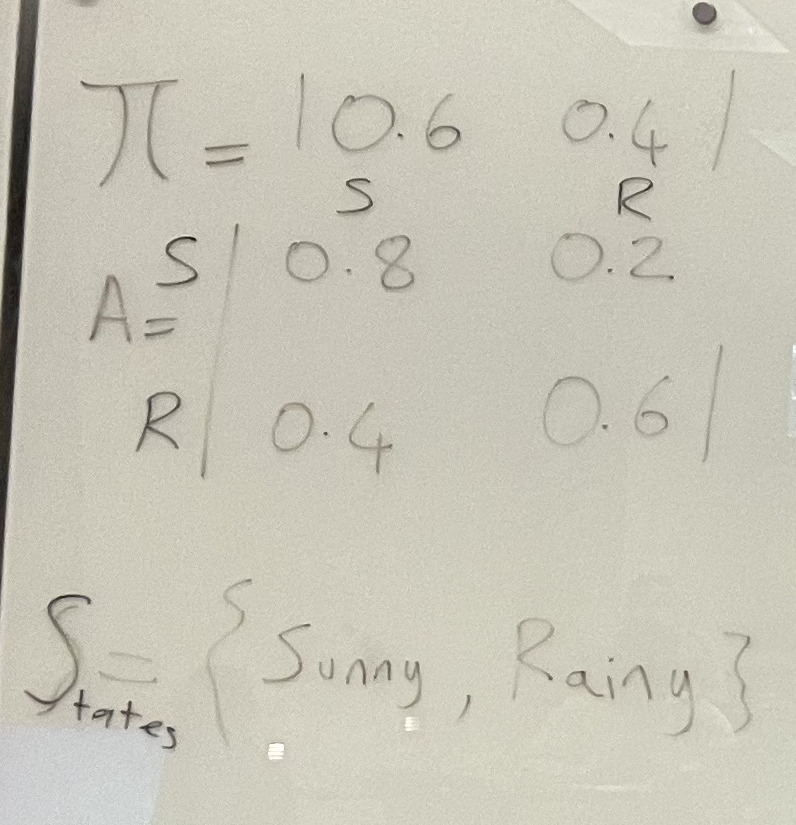 π = | 0.6 0.4 |
S R
S | 0.8 0.2
A =
R | 0.4 0.6 |
States = { Sunny, Rainy }